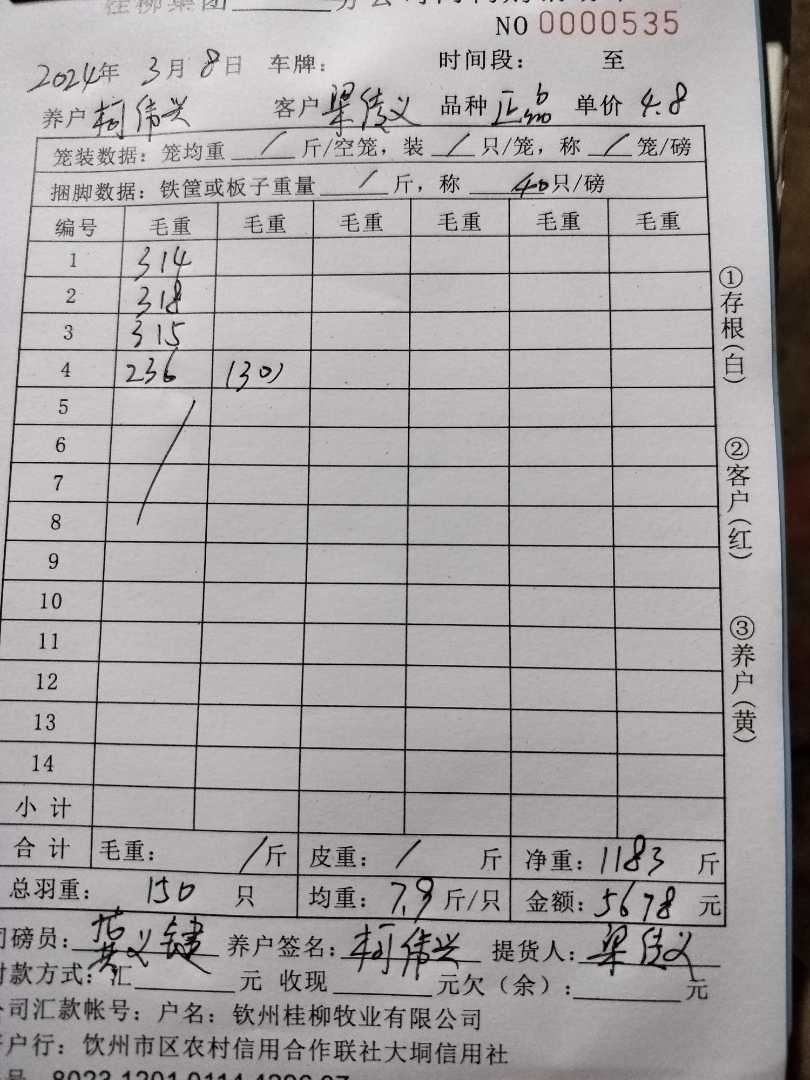 桂柳集团
NO 0000535
2024年 3月 8日 车牌： 时间段： 至
养户 柯伟兴 客户 梁 义 品种 正 单价 4.8
笼装数据：笼均重 / 斤/空笼，装 / 只/笼，称 / 笼/磅
捆脚数据：铁筐或板子重量 / 斤，称 40只/磅
编号 毛重 毛重 毛重 毛重 毛重 毛重
1 314
2 318
3 315
4 236 (30)
5
6
7
8
9
10
11
12
13
14
小计
合计 毛重： / 斤 皮重： / 斤 净重：1183 斤
总羽重： 150 只 均重：7.9 斤/只 金额：5678 元
磅员： 黄义键 养户签名：柯伟兴 提货人：梁 义
付款方式：汇 元 收现 元欠（余）： 元
公司汇款帐号：户名：钦州桂柳牧业有限公司
开户行：钦州市区农村信用合作联社大垌信用社
①存根(白)
②客户(红)
③养户(黄)